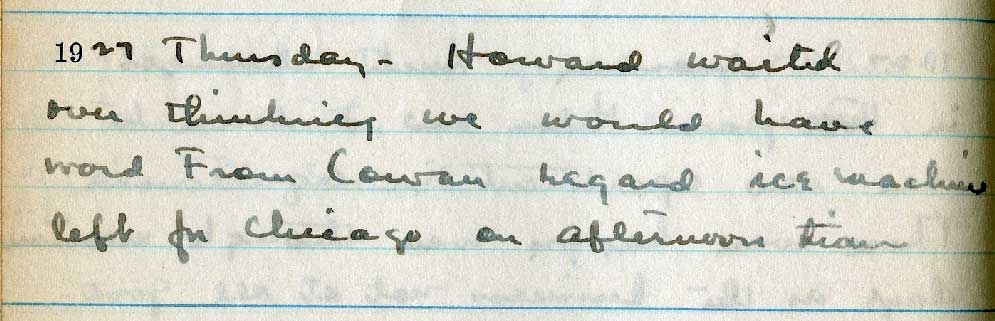 1927 Thursday - Howard waited
over thinking we would have
word From Cowan regard ice machine
left for Chicago on afternoon train